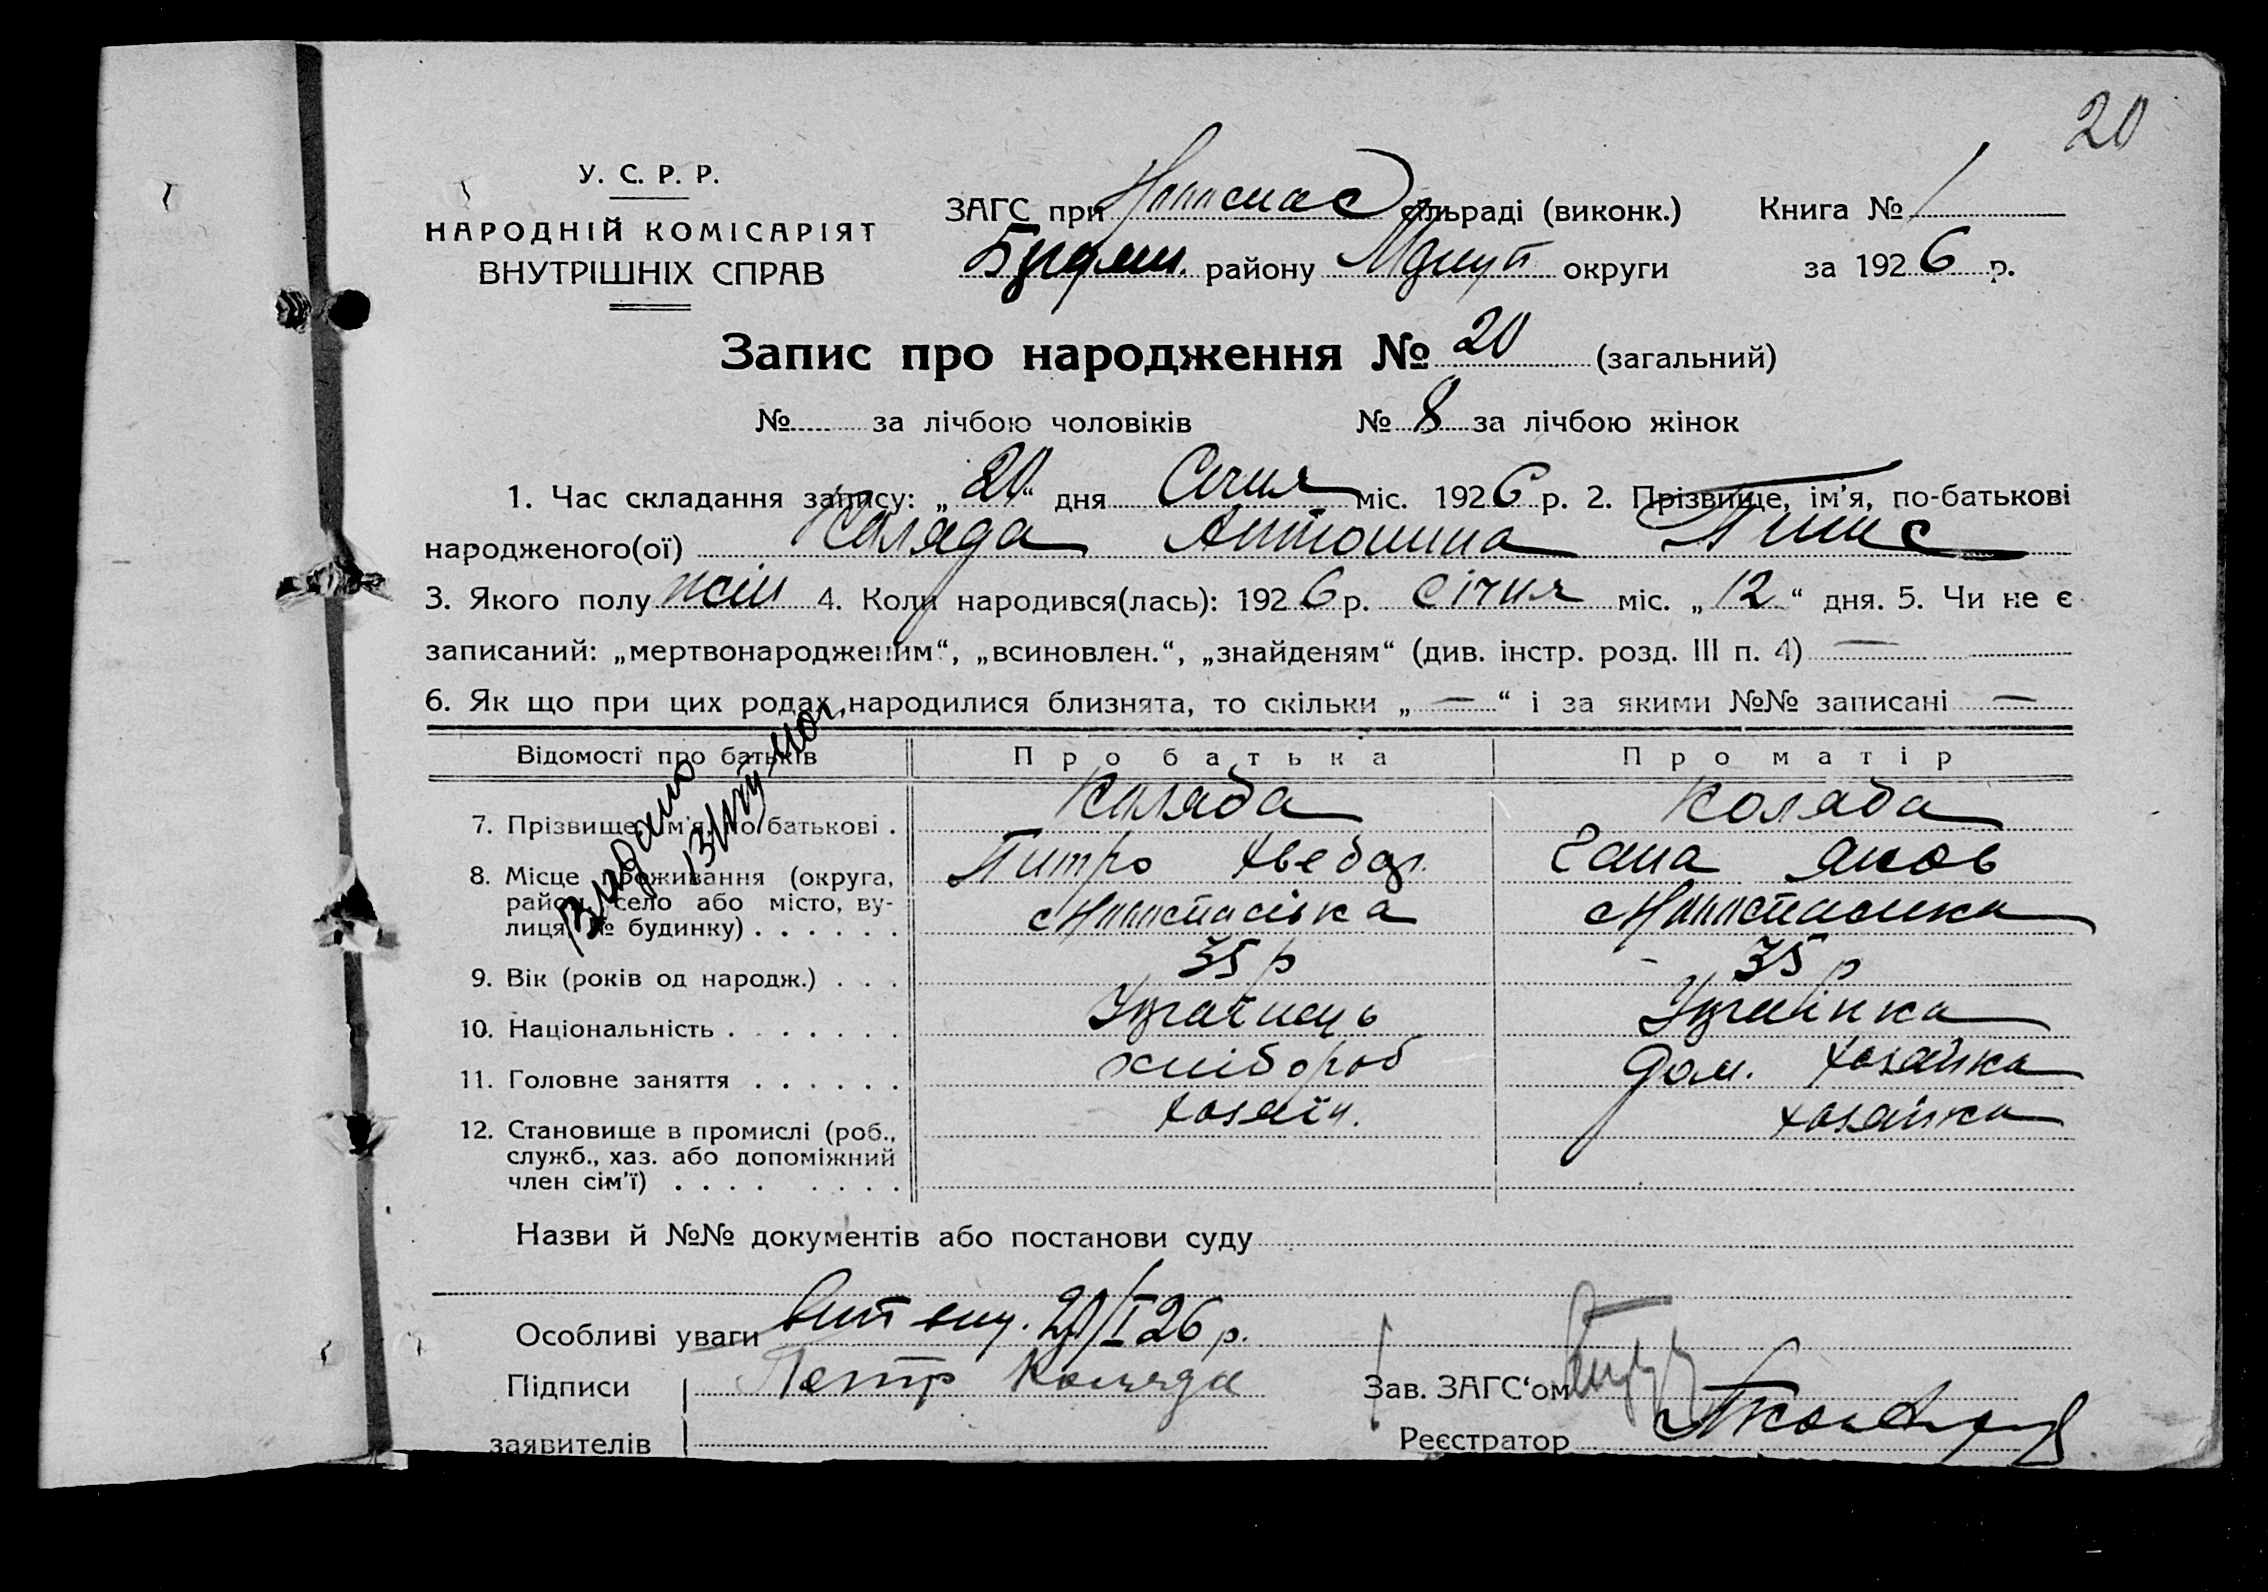 20
У. С. Р. Р.
НАРОДНІЙ КОМІСАРІЯТ
ВНУТРІШНІХ СПРАВ
ЗАГС при сільраді (виконк.) Книга № 1
району округи за 1926 р.
Запис про народження № 20 (загальний)
№ за лічбою чоловіків № 8 за лічбою жінок
1. Час складання запису: „20“ дня Січня міс. 1926 р. 2. Прізвище, ім’я, по-батькові
народженого(ої) Коляда Антонина
3. Якого полу жін 4. Коли народився(лась): 1926 р. Січня міс. „12“ дня. 5. Чи не є
записаний: „мертвонародженим“, „всиновлен.“, „знайденям“ (див. інстр. розд. III п. 4) —
6. Як що при цих родах народилися близнята, то скільки „—“ і за якими №№ записані —
Відомості про батьків Про батька Про матір
7. Прізвище, ім’я, по батькові . Коляда Коляда
Питро Ганна Яков
8. Місце проживання (округа,
район, село або місто, ву-
лиця, № будинку) . . . . . .
9. Вік (років од народж.) . . . 35 р 35 р
10. Національність . . . . . . . Українець Українка
11. Головне заняття . . . . . . хлібороб дом. хозяйка
12. Становище в промислі (роб., хозяїн. хозяйка
служб., хаз. або допоміжний
член сім’ї) . . . . . . . .
Назви й №№ документів або постанови суду
Особливі уваги 20/I 26 р.
Підписи Петр Коляда Зав. ЗАГС‘ом
заявителів Реєстратор